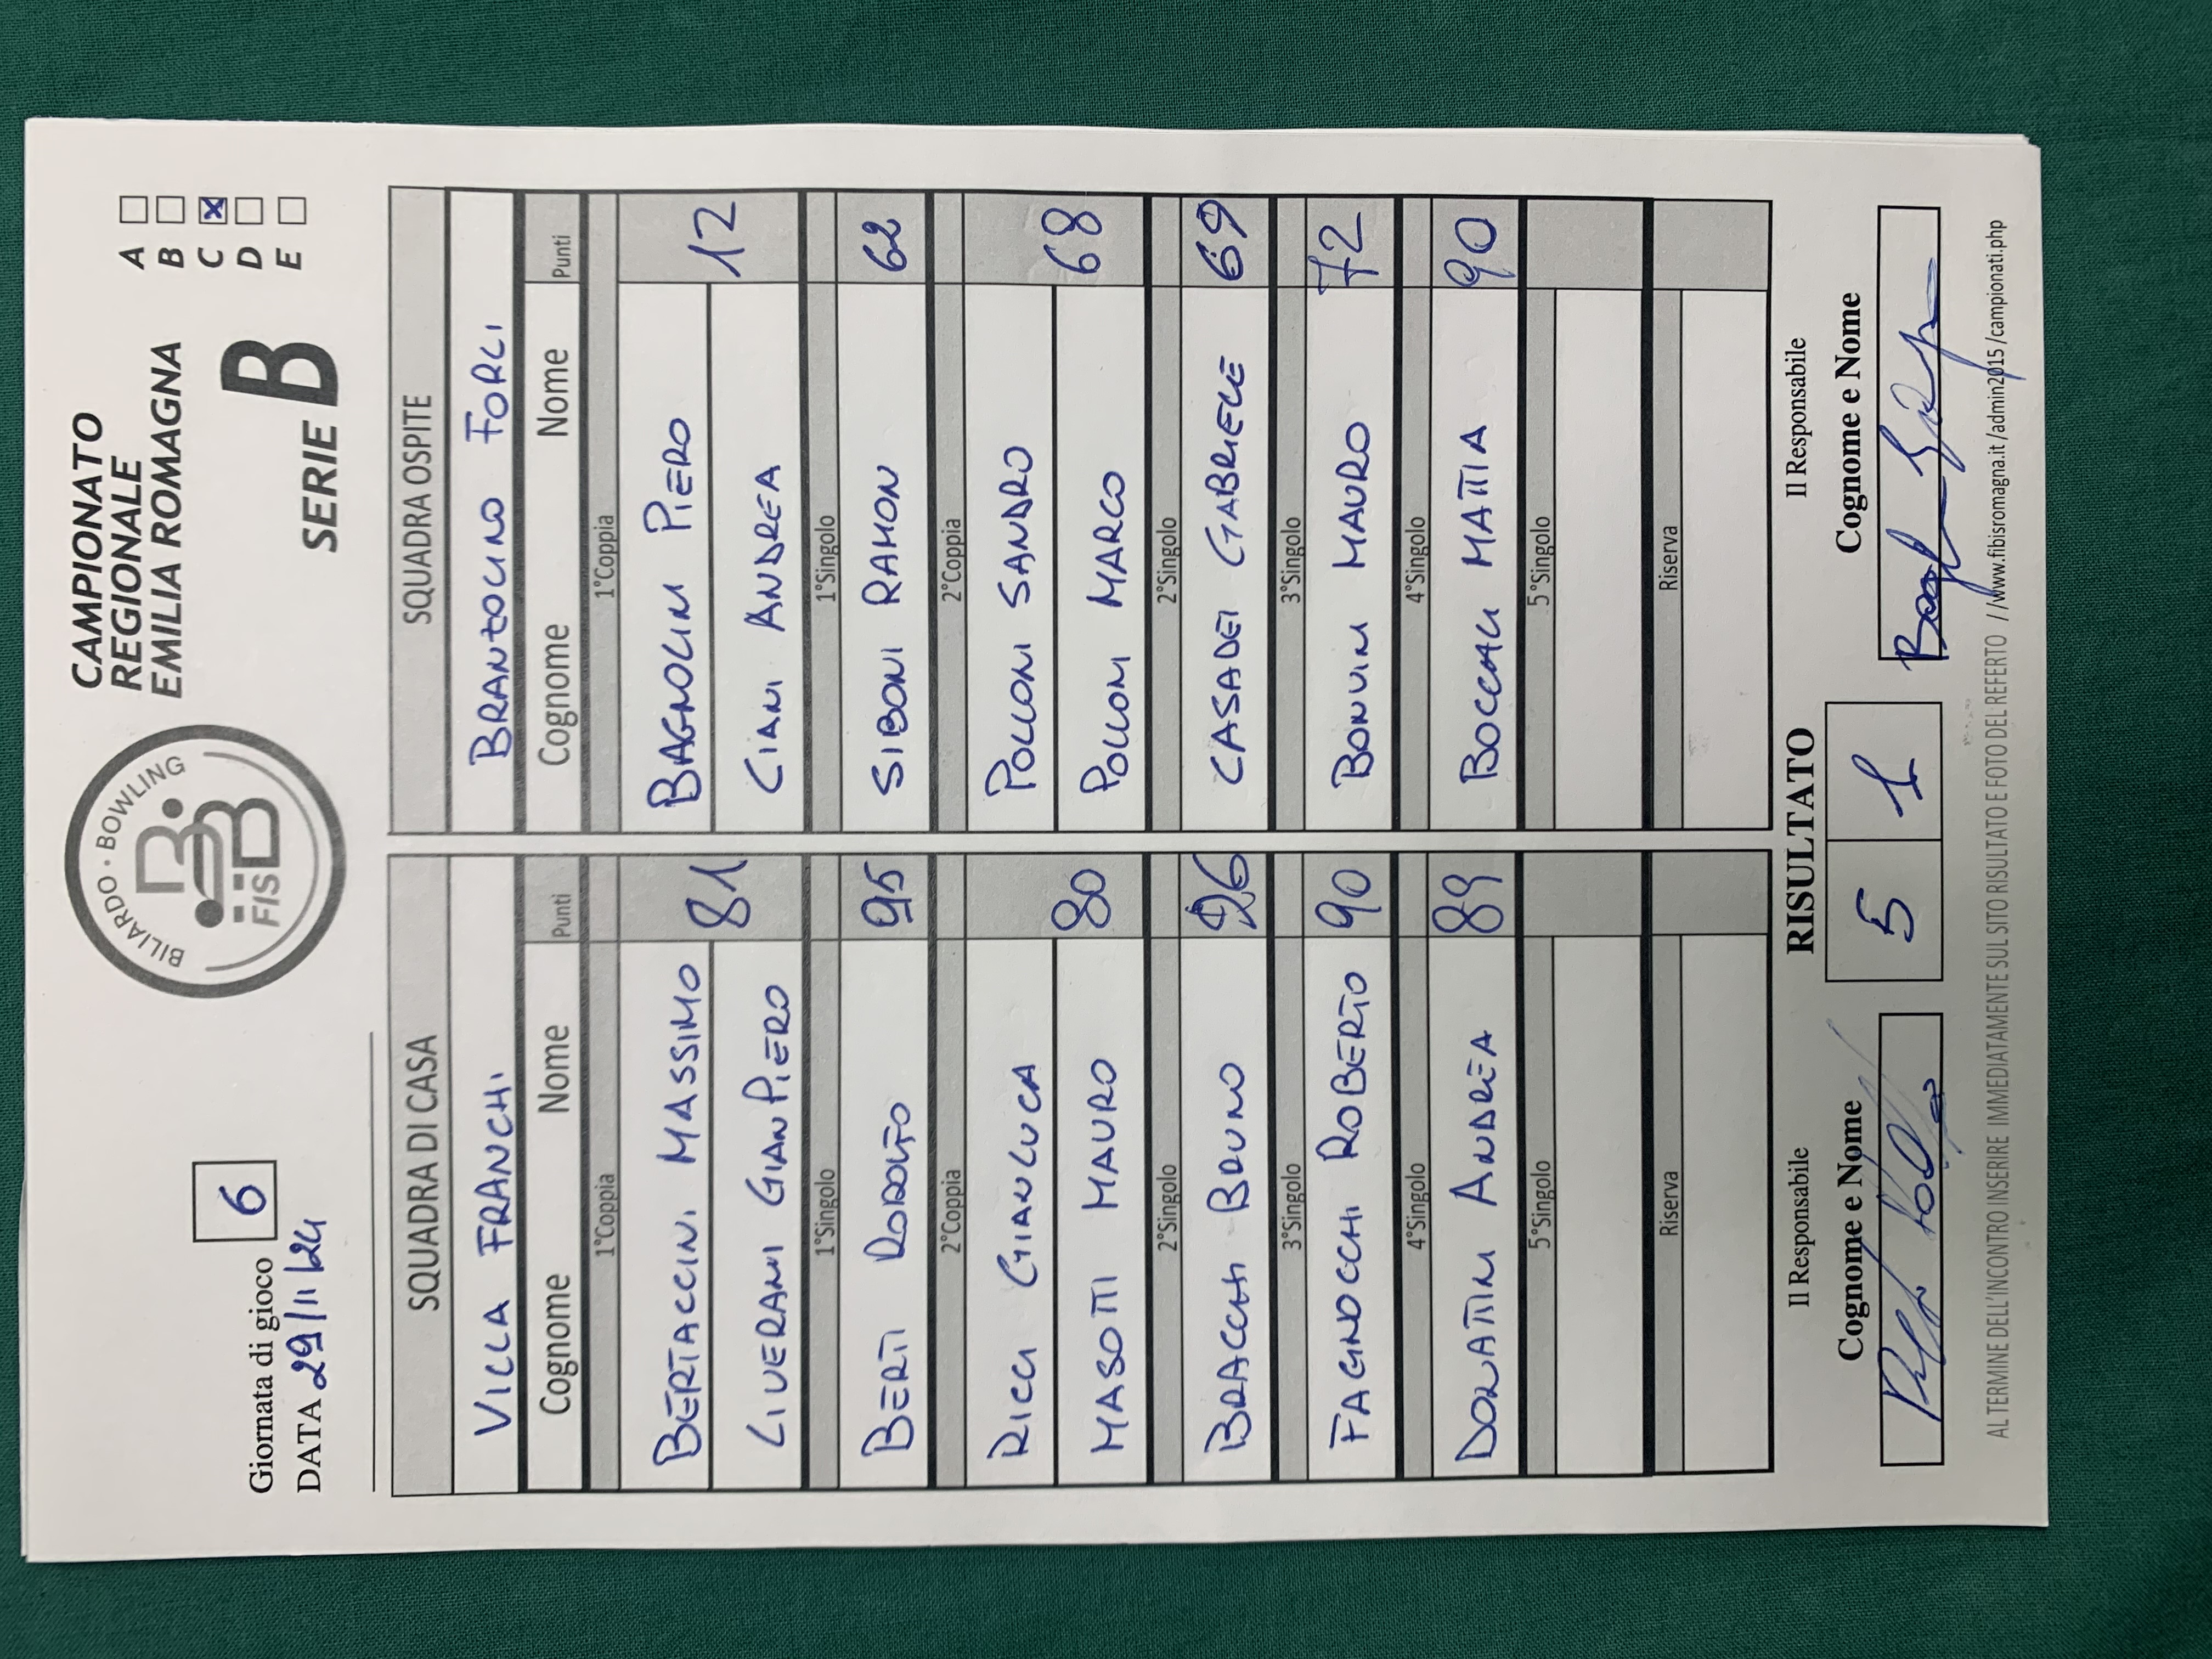 Giornata di gioco 6
DATA 29/11/24
BILIARDO · BOWLING
FISBB
CAMPIONATO
REGIONALE
EMILIA ROMAGNA
SERIE B
A
B
C x
D
E
SQUADRA DI CASA SQUADRA OSPITE
VILLA FRANCHI BRANTOLINO FORLI
Cognome Nome Punti Cognome Nome Punti
1°Coppia 1°Coppia
BERTACCINI MASSIMO 81 BAGNOLINI PIERO 12
LIVERANI GIANPIERO CIANI ANDREA
1°Singolo 1°Singolo
BERTI RODOLFO 95 SIBONI RAMON 62
2°Coppia 2°Coppia
RICCI GIANLUCA POLLONI SANDRO
MASOTTI MAURO 80 POLLONI MARCO 68
2°Singolo 2°Singolo
BRACCHI BRUNO 96 CASADEI GABRIELE 69
3°Singolo 3°Singolo
FAGNOCCHI ROBERTO 90 BONVINI MAURO 72
4°Singolo 4°Singolo
DONATINI ANDREA 89 BOCCALI MATTIA 90
5°Singolo 5°Singolo
Riserva Riserva
Il Responsabile RISULTATO Il Responsabile
Cognome e Nome 5 1 Cognome e Nome
AL TERMINE DELL'INCONTRO INSERIRE IMMEDIATAMENTE SUL SITO RISULTATO E FOTO DEL REFERTO //www.fibisromagna.it/admin2015/campionati.php